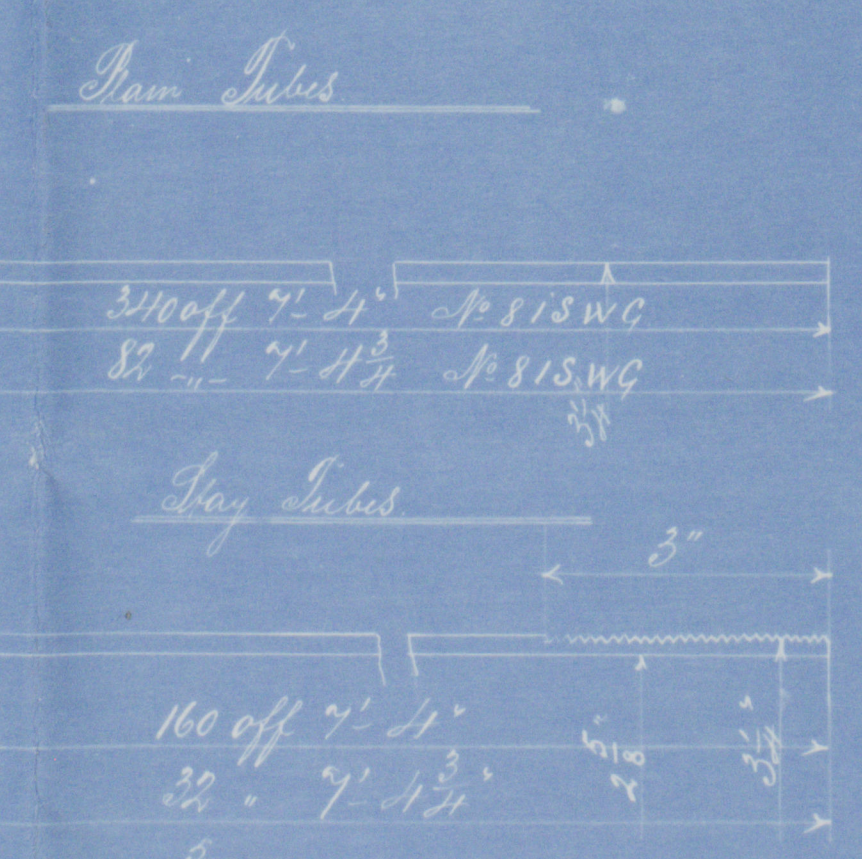 Plain Tubes
340 off 7'- 4" No 8 ISWG
82 -"- 7'- 4 3/4 No 8 ISWG
3 1/4"
Stay Tubes.
3"
160 off 7'- 4"
32 " 7'- 4 3/4"
2 5/8"
3 1/4"
5